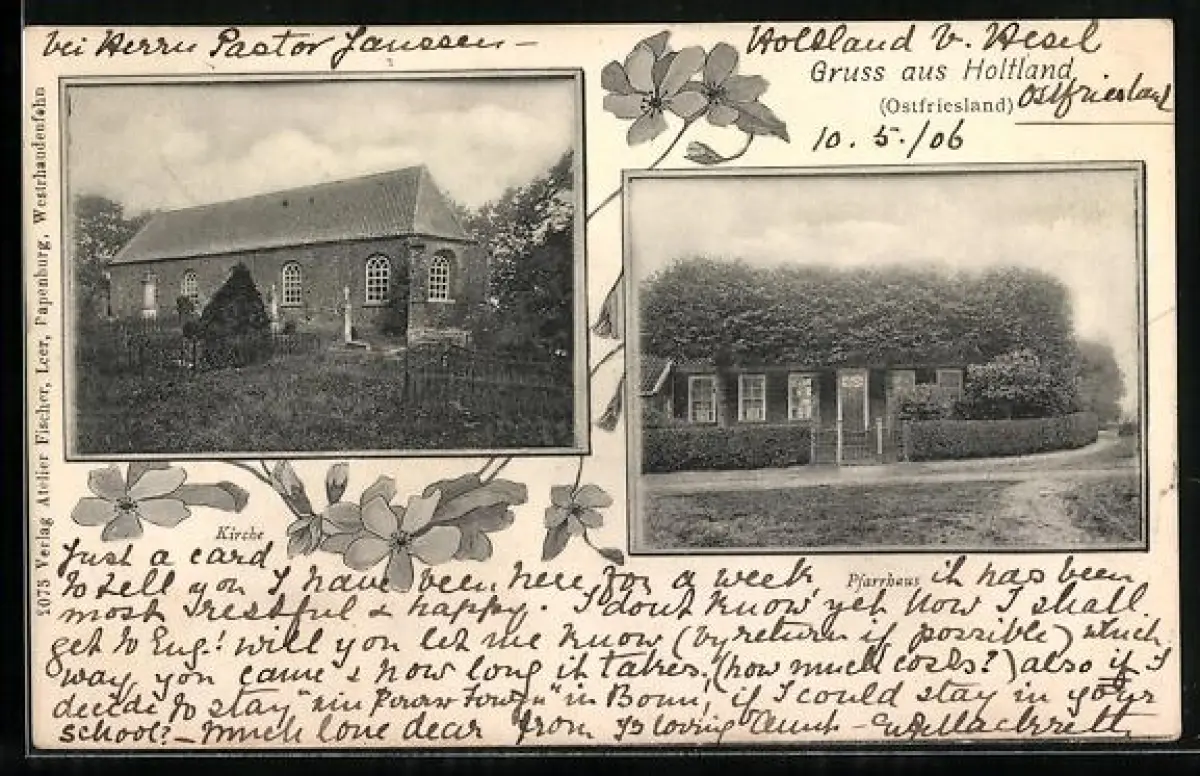 bei Herrn Pastor Janssen –
Holtland b. Hesel
Gruss aus Holtland
(Ostfriesland) Ostfriesland
10. 5./06
2075 Verlag Atelier Fischer, Leer, Papenburg, Westrhauderfehn
Kirche
Pfarrhaus
Just a card
to tell you I have been here for a week, it has been
most restful & happy. I dont know yet how I shall
get to Eng! will you let me know (by return if possible) which
way you came & how long it takes, (how much costs?) also if I
decide to stay "ein Paar" in Bonn, if I could stay in your
school? – Much love dear from yr loving Aunt –